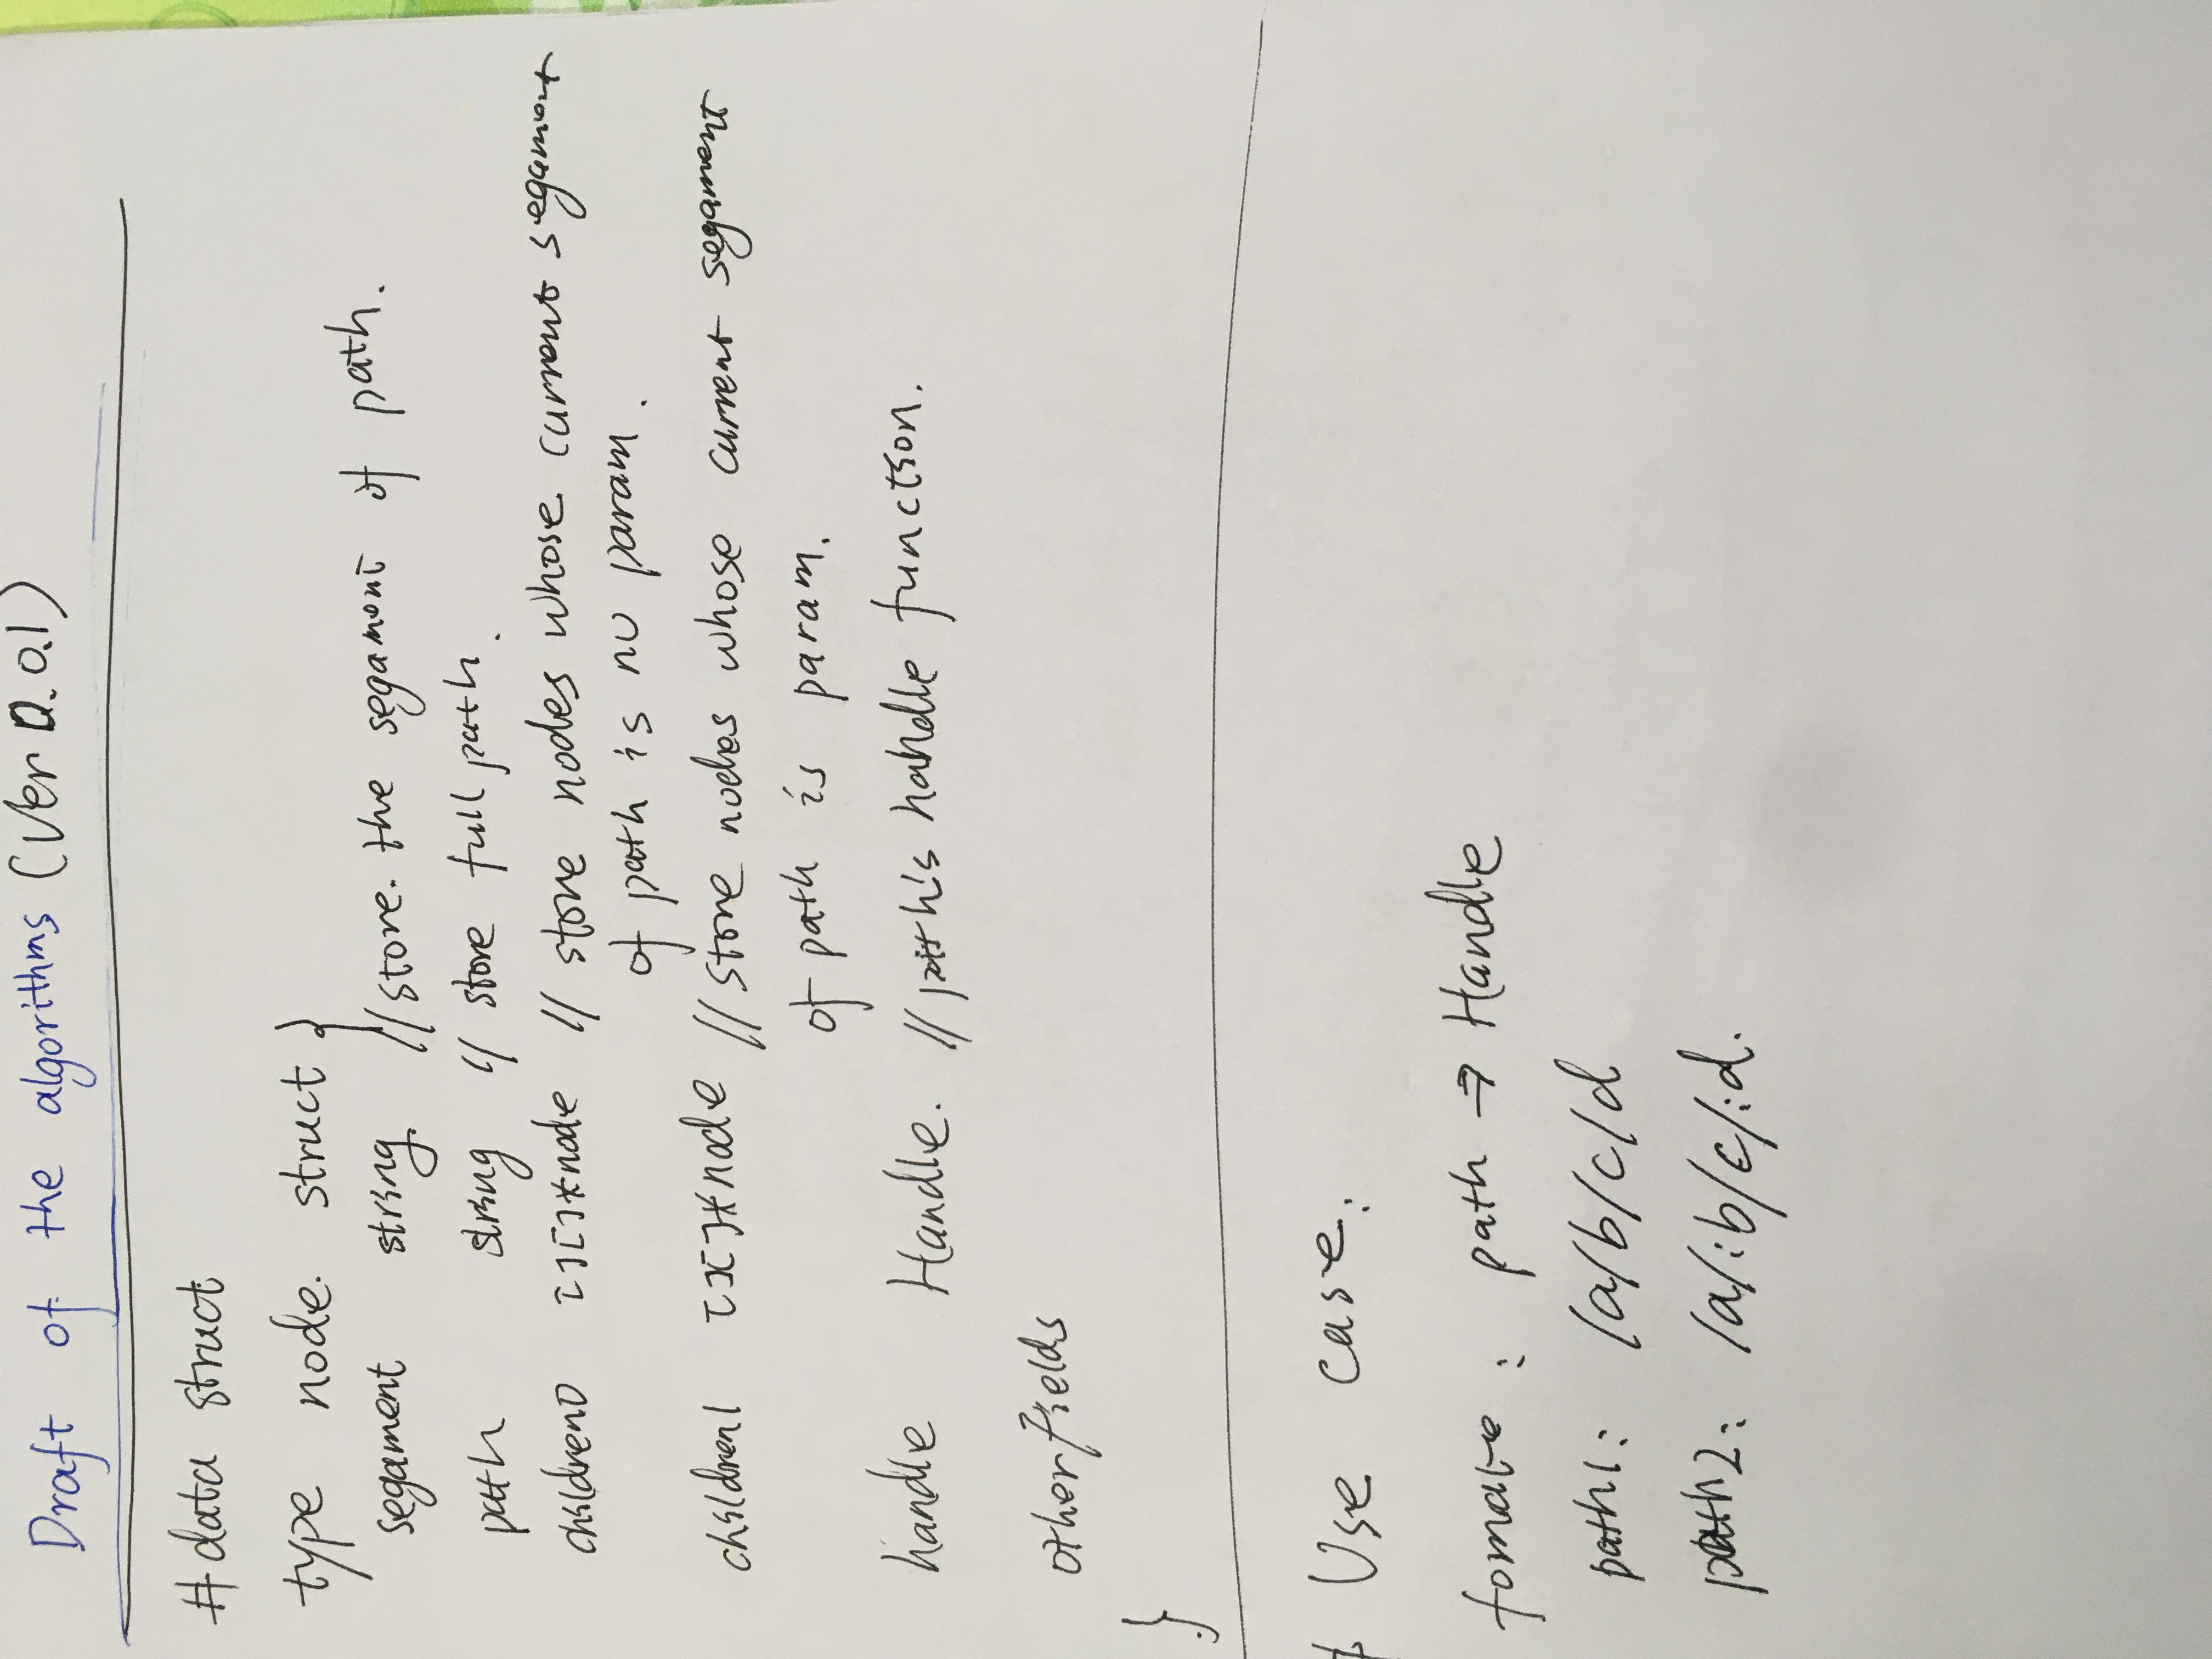 Draft of the algorithms (Ver 0.0.1)
# data struct
type node. struct }
segament string. // store. the segament of path.
path string // store full path.
children0 [][]*node // store nodes whose current segament
of path is no param.
children1 [][]*node // store nodes whose current segament
of path is param.
handle Handle. // path's handle function.
otherfields
}
# Use case:
fomate : path => Handle
path1: /a/b/c/d
path2: /a/:b/c/:d.